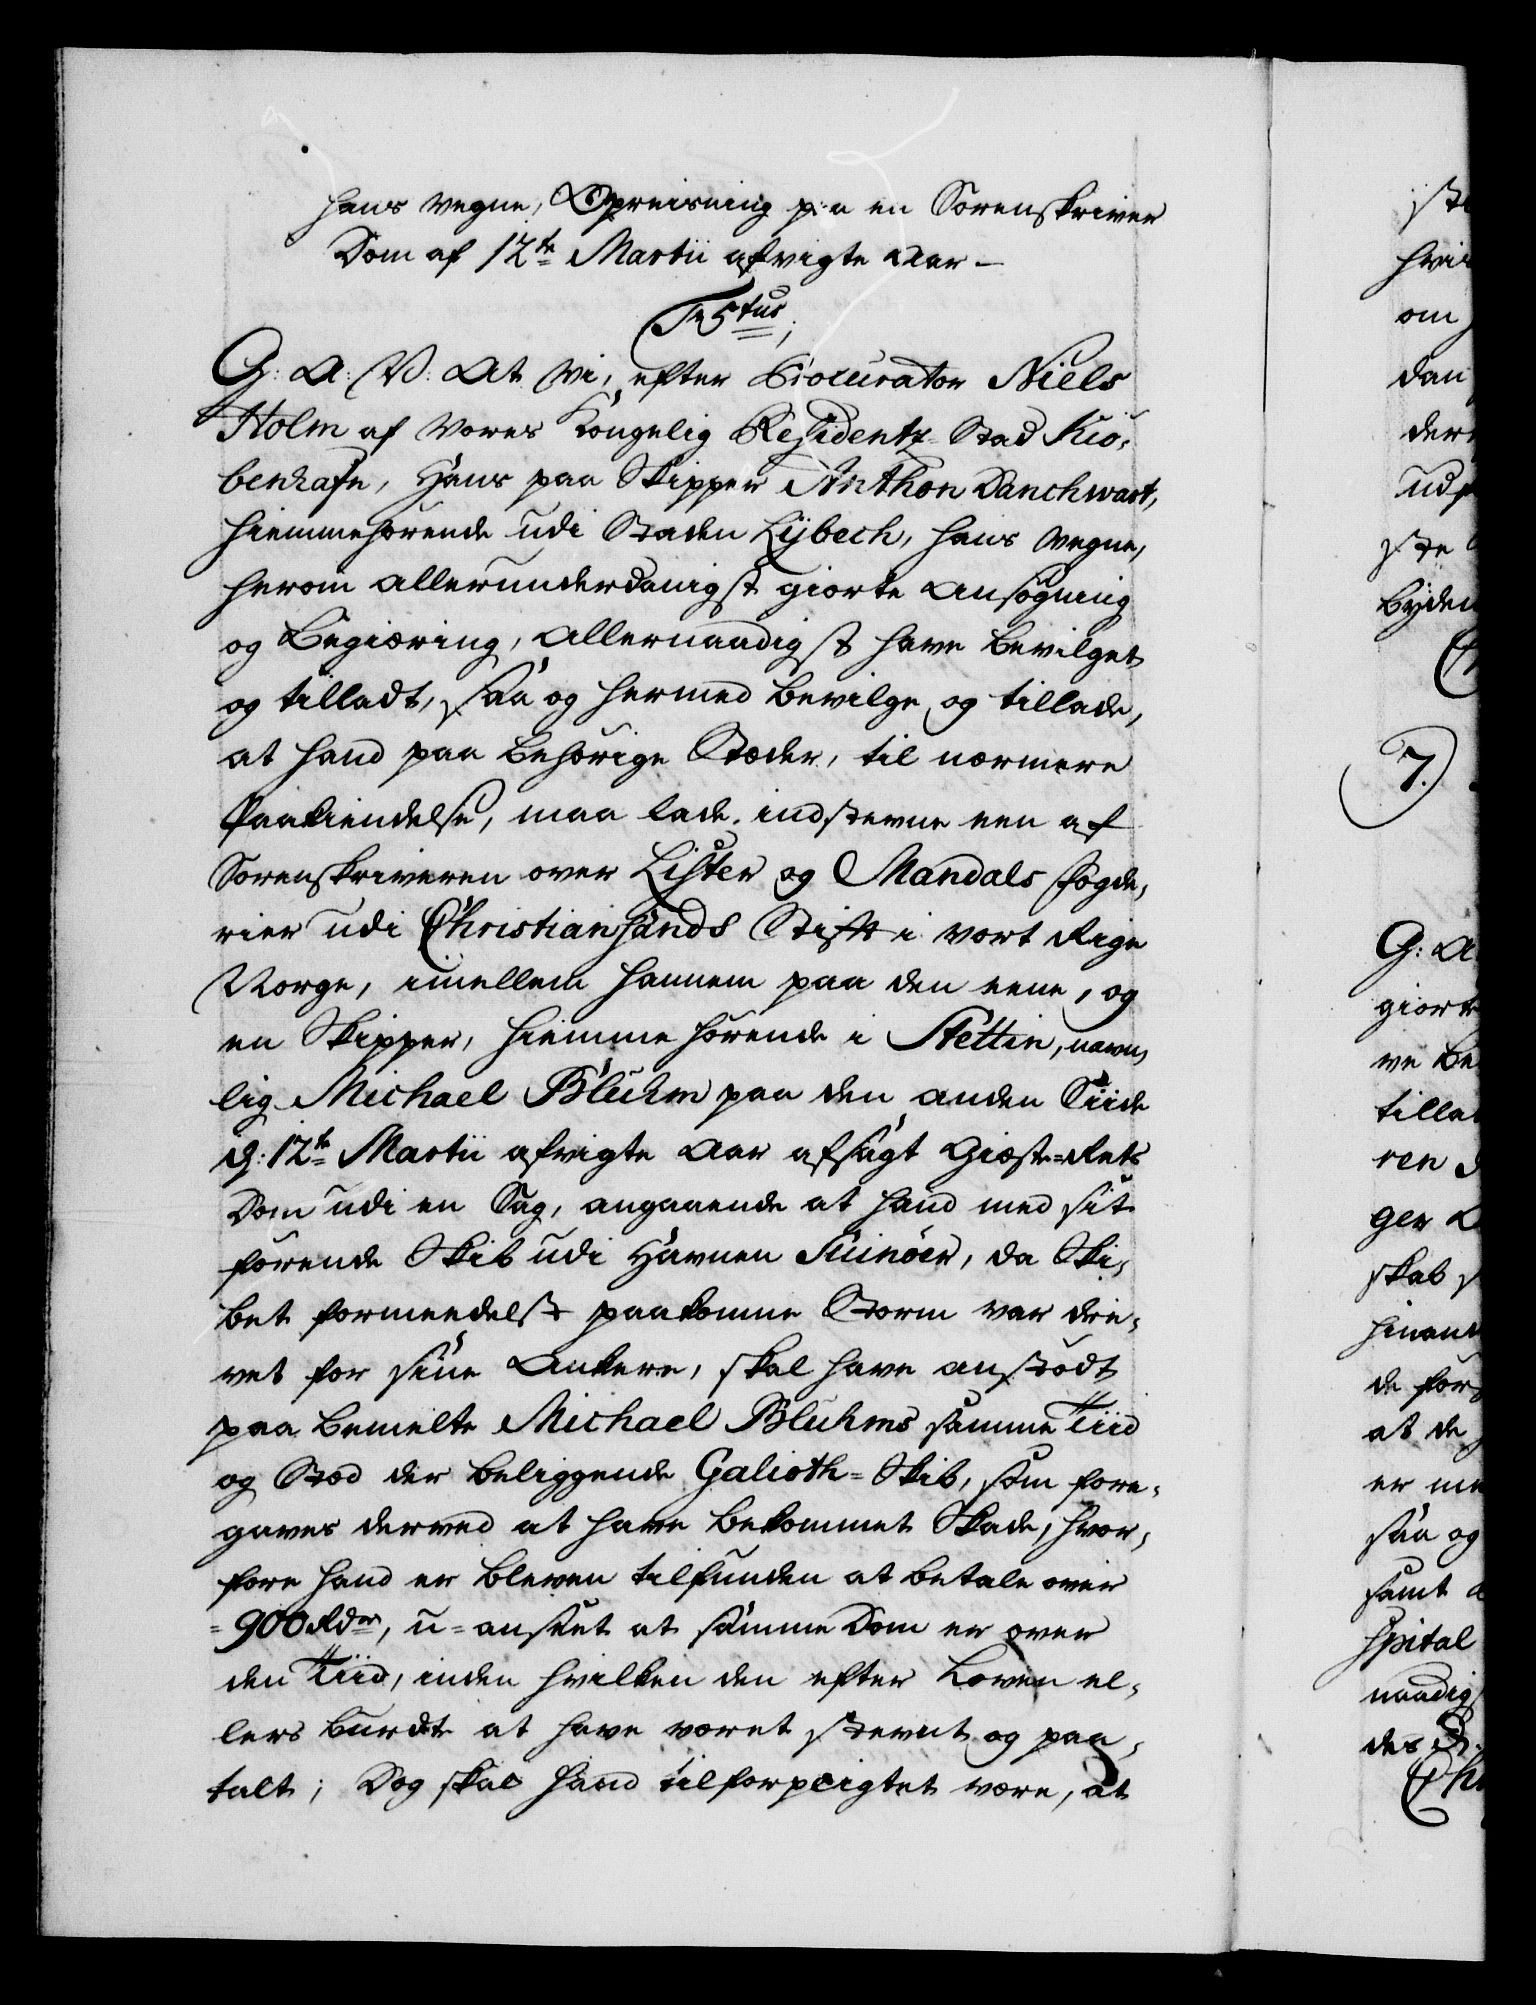 hans vegne, Opreisning paa en Sorenskriver
Dom af 12te Martii afvigte Aar —
Textus;
G: A: V: At Vi, efter Procurator Niels
Holm af Vores Kongelig Residentz-Stad Kiö,
benhafn, Hans paa Skipper Anthon Danchwart,
hiemmehörende udi Staden Lybech, hans vegne,
herom allerunderdanigst giorte Ansögning
og Begiæring, allernaadigst have bevilget
og tilladt, saa og hermed bevilge og tillade,
at hand paa behörige Stæder, til nærmere
Paakiendelse, maa lade indstevne een af
Sorenskriveren over Lister og Mandals Fogde,
rier udi Christiansands Stift i vort Rige
Norge, imellem hannem paa den eene, og
en Skipper, hiemme hörende i Stettin, navn,
lig Michael Bluhm paa den anden Siide
d: 12te Martii afvigte Aar afsagt Giæste-Rets
Dom udi en Sag, angaaende at hand med sit
förende Skib udi Havnen Svinöer, da Ski,
bet formeedelst paakomne Storm var dre,
vet for sine Ankere, skal have anstödt
paa bemelte Michael Bluhms samme Tiid
og Stæd der beliggende Galioth-Skib, som fore,
gaves derved at have bekommet Skade, hvor,
fore hand er bleven tilfunden at betale over
=900 Rdr, u-anseet at samme Dom er over
den Tiid, inden hvilken den efter Loven el,
lers burdte at have været stevnt og paa,
talt; Dog skal hand tilforpligtet være, at
hvis
om
dan
udi
byden
7.)
G: A
giort
ve be
tillad
ren
ger
skab
hinand
de
at de
er
saa og
samt
hpital
naadig
des